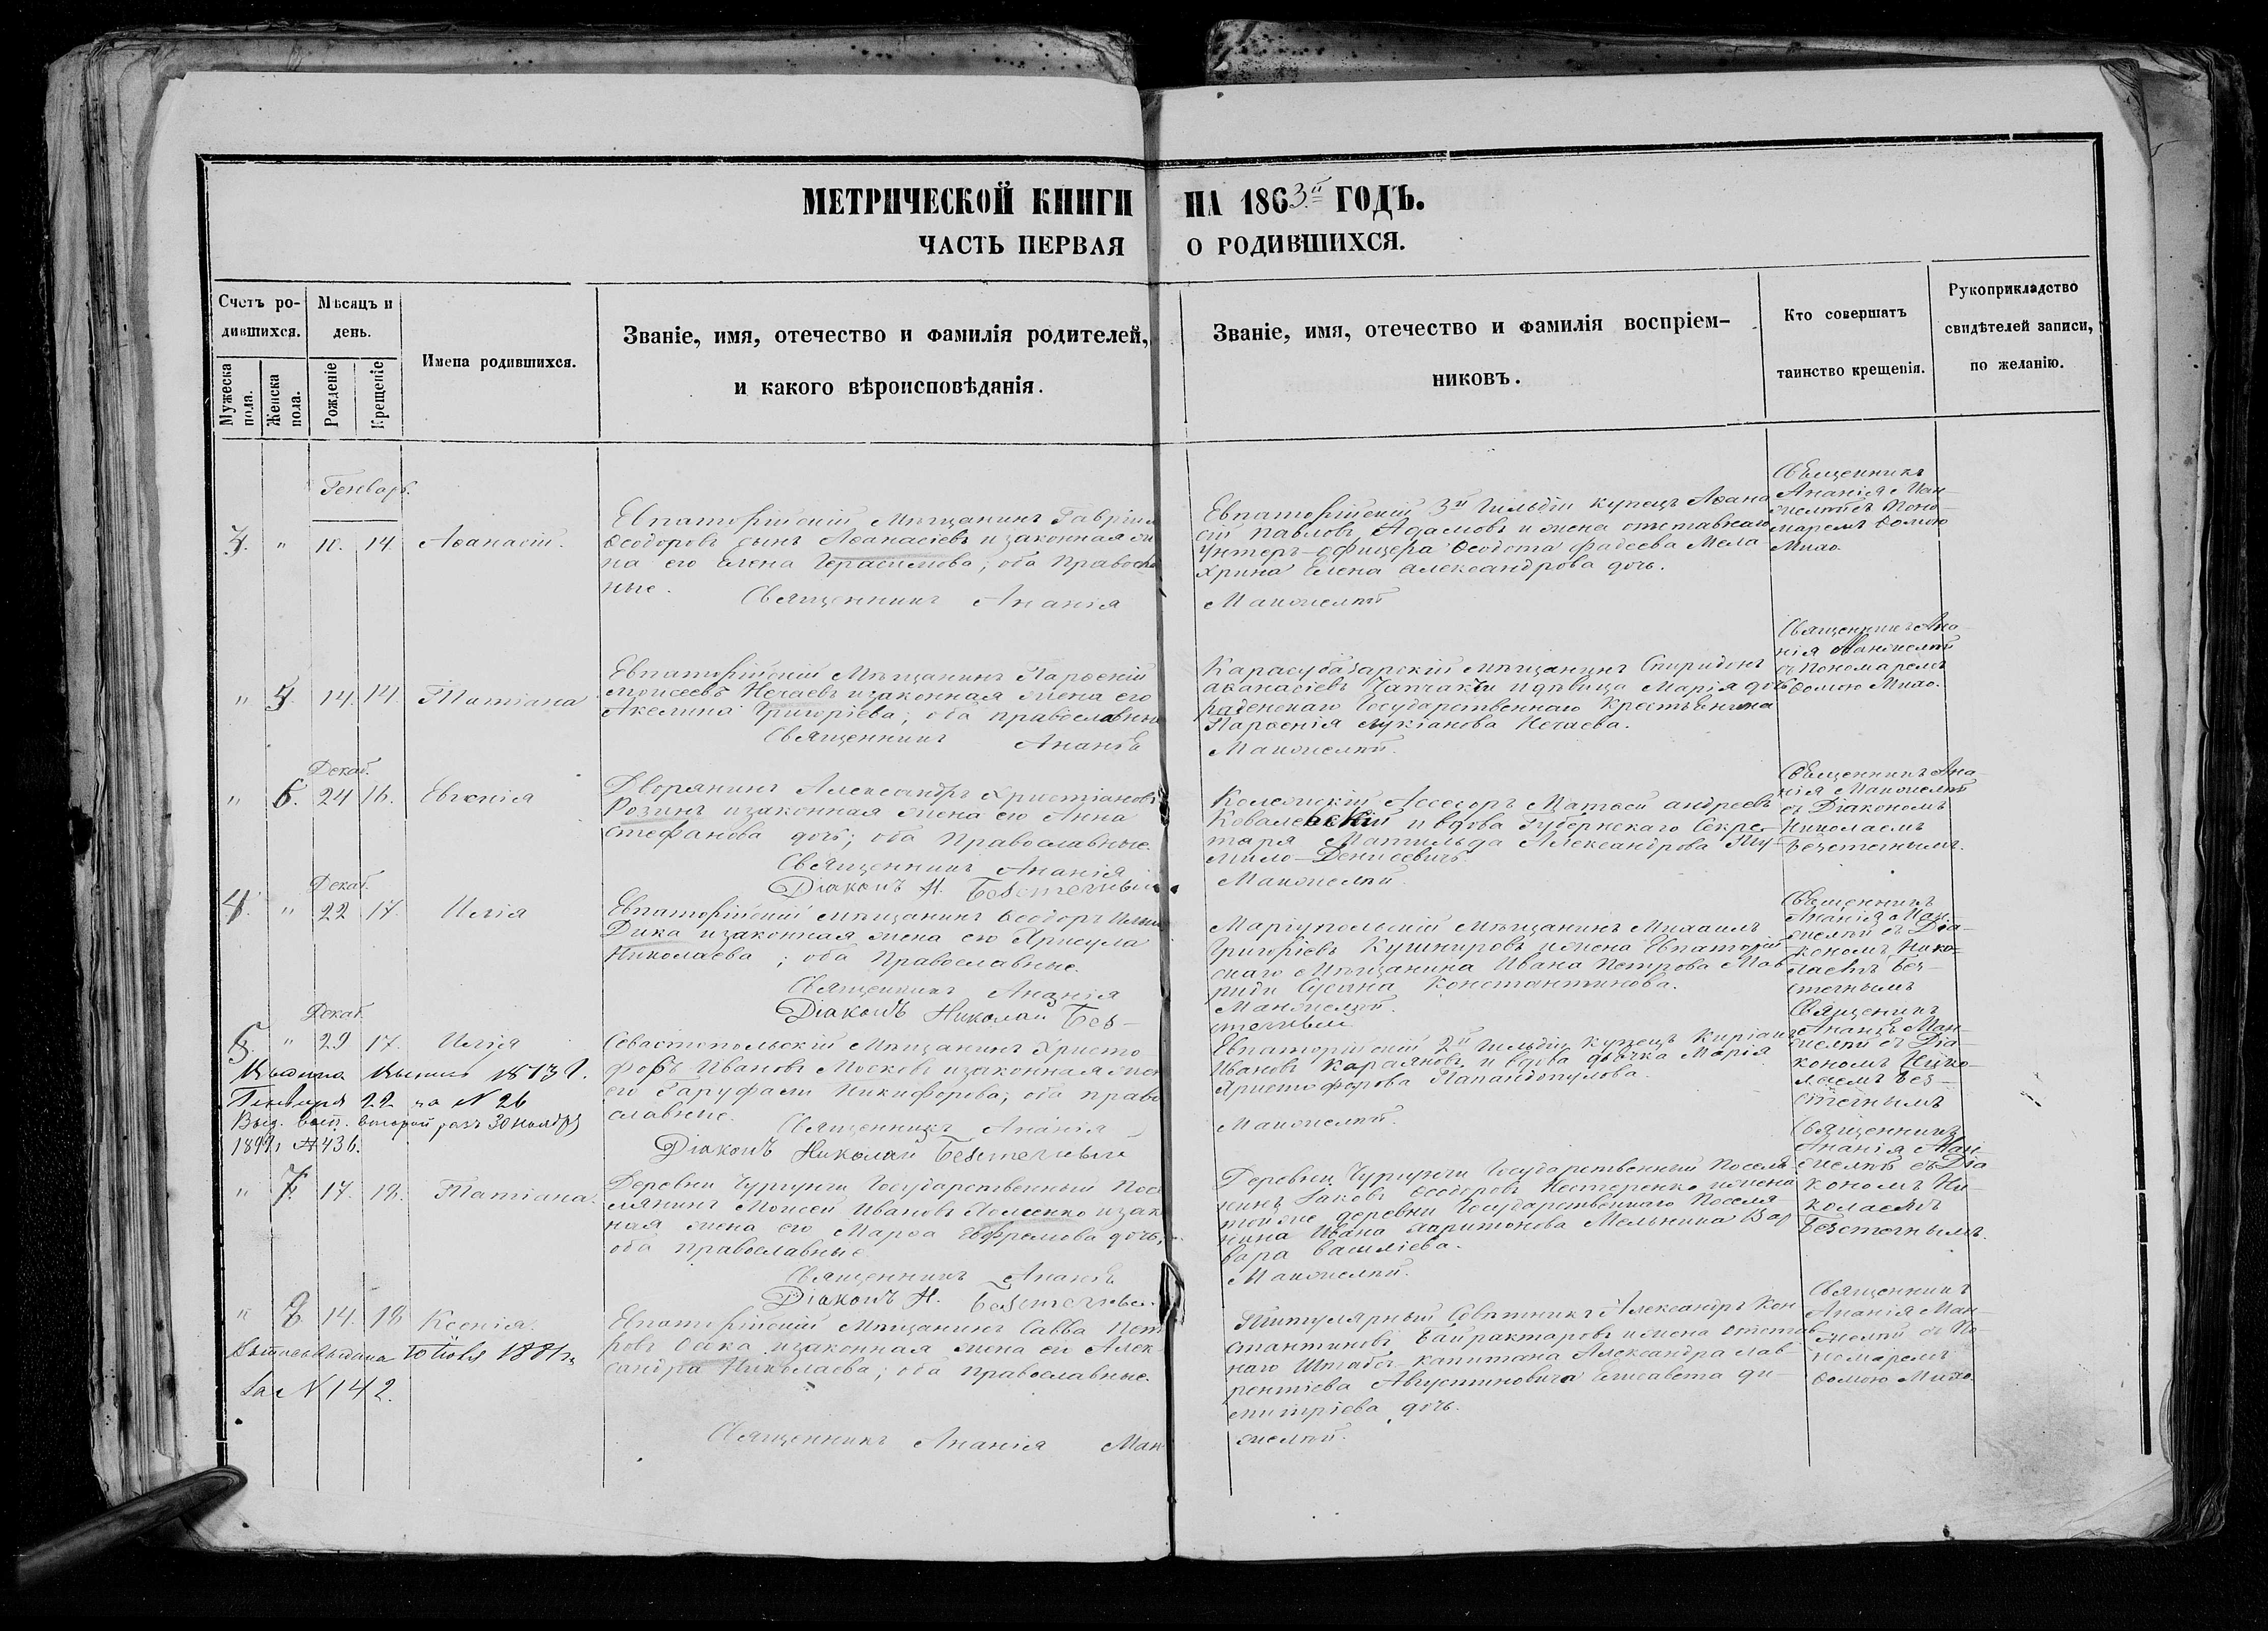 МЕТРИЧЕСКОЙ КНИГИ НА 1863й ГОДЪ.
ЧАСТЬ ПЕРВАЯ О РОДИВШИХСЯ.
Счетъ ро-
дившихся.
Мужеска пола.
Женска пола.
Мѣсяцъ и
день.
Рожденіе
Крещеніе
Имена родившихся.
Званіе, имя, отечество и фамилія родителей,
и какого вѣроисповѣданія.
Званіе, имя, отечество и фамилія воспріем-
никовъ.
Кто совершатъ
таинство крещенія.
Рукоприкладство
свидѣтелей записи,
по желанію.
Генварь.
3. " 10. 14. Аѳанасій.
Евпаторійскій Мѣщанинъ Гавріил
Ѳеодоровъ сынъ Аѳанасіевъ и законная же
на его Елена Герасимова; оба Правосла
ные.
Священникъ Ананія
Евпаторійскій 3й Гильдіи купецъ Аѳана
сій Павловъ Адамовъ и жена отставнаго
Унтеръ-офицера Ѳеодота Фадеева Мела
Хрина Елена Александрова дочь.
Манжелѣй
Священникъ
Ананія Ман-
желѣй съ Поно-
маремъ Ѳомою
Михо.
" 5. 14. 14. Татіана
Евпаторійскій Мѣщанинъ Парѳеній
Моисеевъ Нечаевъ и законная жена его
Акелина Григоріева; оба православные
Священникъ Ананія
Карасубазарскій мѣщанинъ Спиридонъ
Аѳанасіевъ и дѣвица Марія дочь
Государственнаго Крестьянина
Парѳенія Лукіанова Нечаева.
Манжелѣй.
Священникъ Ана-
нія Манжелѣй
съ Пономаремъ
Ѳомою Михо.
Декаб.
" 6. 24 16. Евгенія
Дворянинъ Александръ Христіановъ
Розинъ и законная жена его Анна
Стефанова дочь; оба Православные.
Священникъ Ананія
Діаконъ Н. Безстечный
Колежскій Ассесоръ Матвей Андреевъ
Ковалевскій и вдова Губернскаго Секре-
таря Матильда Александрова
Денисевичъ.
Манжелѣй.
Священникъ Ана-
нія Манжелѣй
съ Діакономъ
Николаемъ
Безстечнымъ.
Декаб.
4. " 22 17. Илія
Евпаторійскій мѣщанинъ Ѳеодоръ
Дика и законная жена его Хрисула
Николаева; оба Православные.
Священникъ Ананія
Діаконъ Николай Без-
Маріупольскій мѣщанинъ Михаилъ
Григоріевъ Кушнировъ и жена Евпаторій
скаго Мѣщанина Ивана Петрова Мав
риди Сусана Константинова.
Манжелѣй.
стечный
Священникъ
Ананія Ман-
желѣй съ Діа-
кономъ Нико-
лаемъ Без-
стечнымъ
Декаб.
5. " 29 17. Илія
Севастопольскій Мѣщанинъ Христо
форъ Ивановъ Московъ и законная жен
его Гаруфали Никифорова; оба право
славные.
Священникъ Ананія
Діаконъ Николай Безстечный
Евпаторійскій 2й гильдіи купецъ Киріакъ
Ивановъ Караяновъ и вдова Марія
Христофорова Папандопулова.
Манжелѣй.
Священникъ
Ананія Ман-
желѣй съ Діа
кономъ Нико-
лаемъ Без-
стечнымъ
1873 г.
Генваря 22 за N 26
Выд. второй разъ 30 ноября
N 436.
" 7. 17. 19. Татіана.
Деревни Чуруючи Государственный Посе
лянинъ Моисей Ивановъ и зако
ная жена его Марѳа Ефремова дочь;
оба православные.
Священникъ Ананія
Діаконъ Н. Безстечный
Деревни Чуруючи Государственный Поселя
нинъ Іаковъ Ѳеодоровъ Нестеренко и жена
той же деревни Государственнаго Поселя
нина Ивана Харитонова Мельника Вар
вара Василіева.
Манжелѣй.
Священникъ
Ананія Ман
желѣй съ Діа
кономъ Ни-
колаемъ
Безстечнымъ.
" 8. 14. 19. Ксенія.
Евпаторійскій Мѣщанинъ Савва Пет
ровъ и законная жена его Алек-
сандра Николаева; оба православные.
Священникъ Ананія Ман
Титулярный Совѣтникъ Александръ Кон
стантиновъ Байрактаровъ и жена отстав
наго Штабсъ-капитана Александра Лав-
рентіева Августиновича Елисавета Ди-
митріева дочь.
желѣй.
Священникъ
Ананія Ман-
желѣй съ По-
номаремъ
Ѳомою Михо.
За N 142.